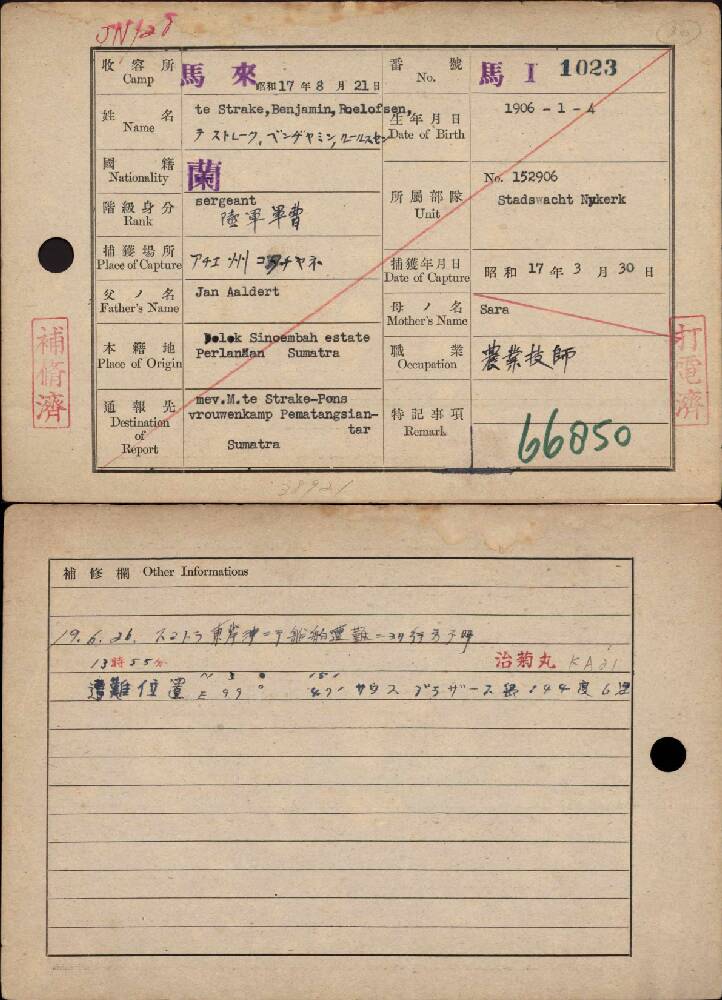 JN128
收容所 Camp 馬來 昭和17年8月21日 番號 No. 馬 I 1023
姓名 Name te Strake,Benjamin,Roelofsen,
テ ストレーク, ベンヂヤミン, ロールスセン
生年月日 Date of Birth 1906 - 1 - 4
國籍 Nationality 蘭
階級身分 Rank sergeant
陸軍軍曹
所屬部隊 Unit No. 152906
Stadswacht Nykerk
捕獲場所 Place of Capture アチエ州 コタチヤネ
捕獲年月日 Date of Capture 昭和 17 年 3 月 30 日
父ノ名 Father's Name Jan Aaldert
母ノ名 Mother's Name Sara
本籍地 Place of Origin Dolok Sinoembah estate
Perlanaan Sumatra
職業 Occupation 農業技師
通報先 Destination of Report mev.M.te Strake-Pons
vrouwenkamp Pematangsian-
tar
Sumatra
特記事項 Remark 66850
補脩濟
打電濟
38921
補修欄 Other Informations
19.6.26. スマトラ東岸沖ニテ船舶遭難ニヨリ行方不明
13時55分 治菊丸 KA21
遭難位置 N 3° 15′
E 99° 47′ サウス ブラザース島 144度 6浬